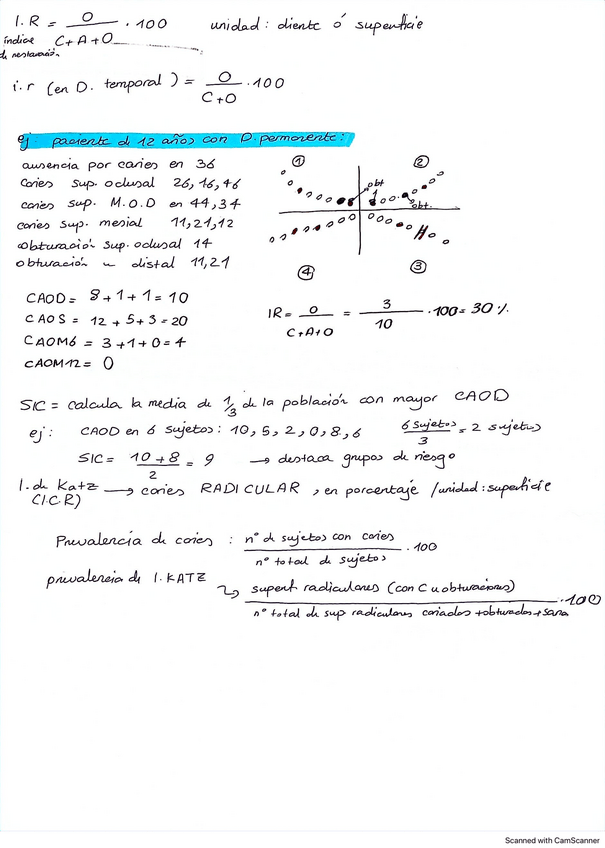 I.R = O / C+A+O · 100 unidad: diente ó superficie
índice de restauración
i.r (en D. temporal) = O / C+O · 100
ej paciente d 12 años con D. permanente:
ausencia por caries en 36
Caries sup. oclusal 26, 16, 46
caries sup. M.O.D en 44, 34
caries sup. mesial 11, 21, 12
obturación sup. oclusal 14
obturación u distal 11, 21
① ②
obt
obt.
④ ③
CAOD = 8+1+1 = 10
CAOS = 12+5+3 = 20
CAOM6 = 3+1+0 = 4
CAOM12 = 0
IR = O / C+A+O = 3 / 10 · 100 = 30 %
SIC = calcula la media de 1/3 de la población con mayor CAOD
ej: CAOD en 6 sujetos: 10, 5, 2, 0, 8, 6 6 sujetos / 3 = 2 sujetos
SIC = 10+8 / 2 = 9 → destaca grupos de riesgo
I. de Katz → caries RADICULAR, en porcentaje /unidad: superficie
(I.C.R)
Prevalencia de caries : nº d sujetos con caries / nº total de sujetos · 100
prevalencia di I. KATZ
superf radiculares (con C u obturaciones) / nº total de sup radiculares cariados + obturados + sana · 100
Scanned with CamScanner